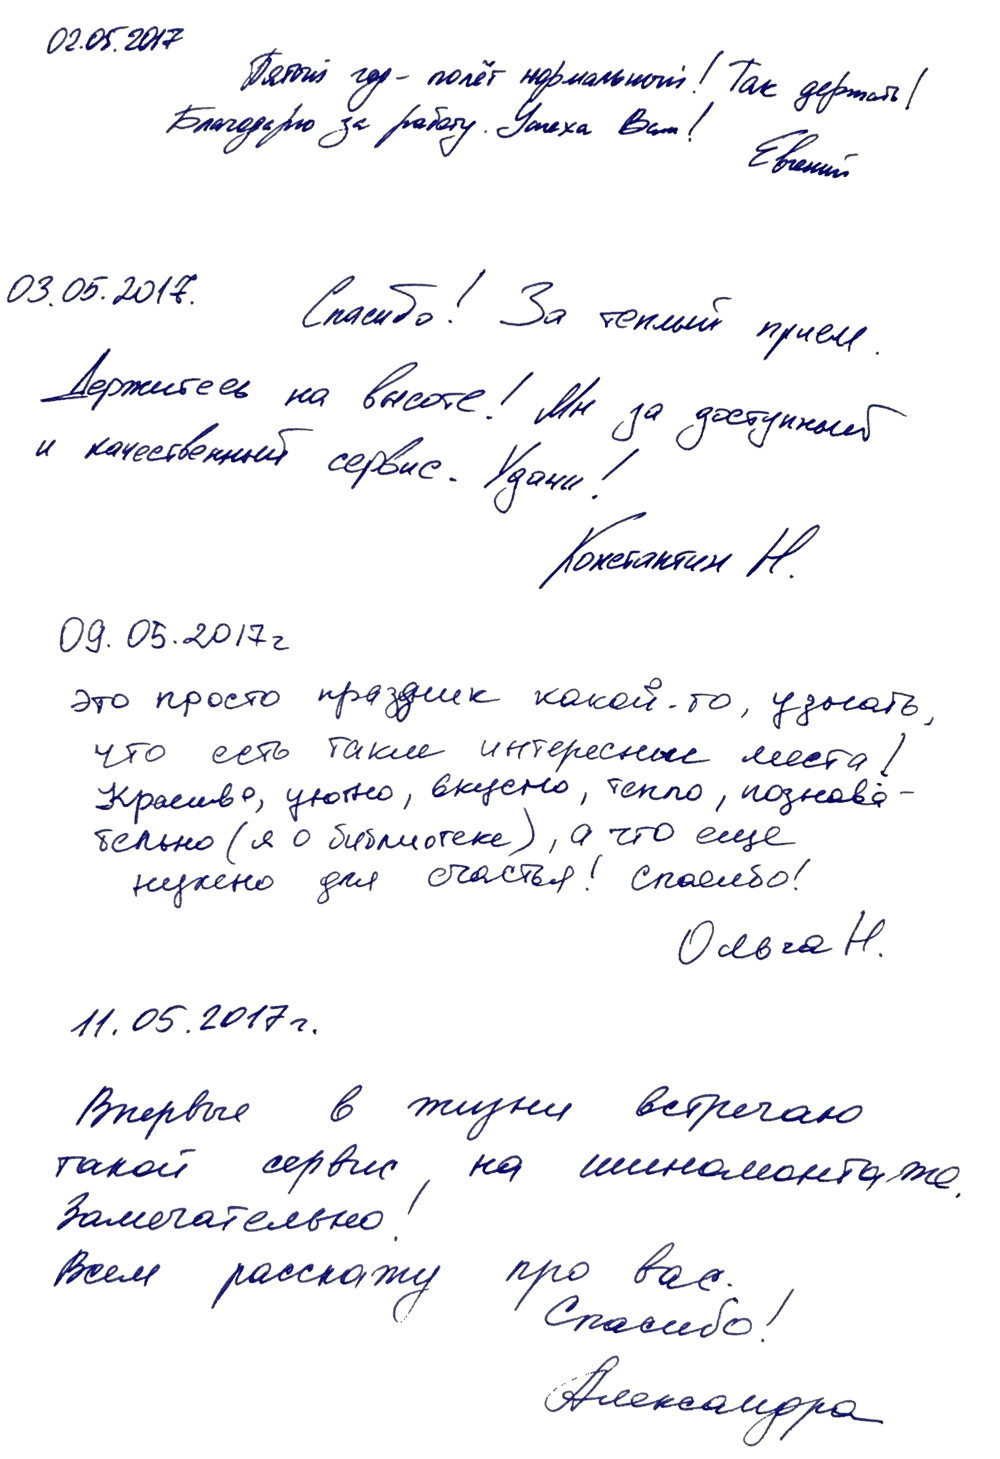 02.05.2017
Пятый год - полёт нормальный! Так держать!
Благодарю за работу. Успеха Вам!
Евгений
03.05.2017.
Спасибо! За теплый прием.
Держитесь на высоте! Мы за доступный
и качественный сервис. Удачи!
Константин Н.
09.05.2017г
Это просто праздник какой-то, узнать,
что есть такие интересные места!
Красиво, уютно, вкусно, тепло, познава-
тельно (я о библиотеке), а что еще
нужно для счастья! Спасибо!
Ольга Н.
11.05.2017г.
Впервые в жизни встречаю
такой сервис, на шиномонтаже.
Замечательно!
Всем расскажу про вас.
Спасибо!
Александра